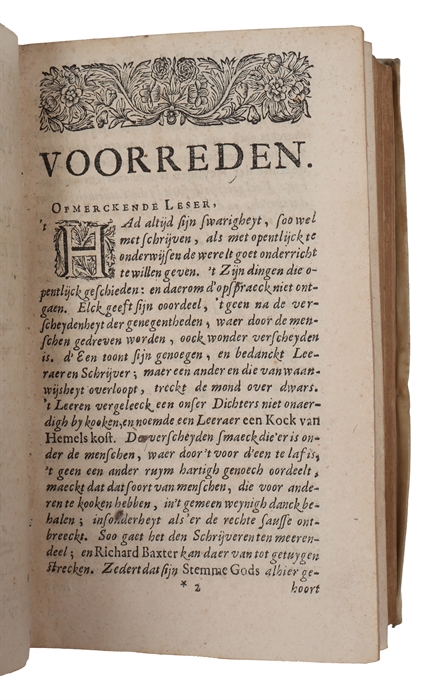 VOORREDEN.
OPMERCKENDE LESER,
't HAd altijd sijn swarigheyt, soo wel
met schrijven, als met opentlijck te
onderwijsen de werelt goet onderricht
te willen geven. 't Zijn dingen die o-
pentlijck geschieden: en daerom d'opspraeck niet ont-
gaen. Elck geeft sijn oordeel, 't geen na de ver-
scheydenheyt der genegentheden, waer door de men-
schen gedreven worden, oock wonder verscheyden
is. d'Een toont sijn genoegen, en bedanckt Lee-
raer en Schrijver; maer een ander en die van waan-
wijsheyt overloopt, treckt de mond over dwars.
't Leeren vergeleeck een onser Dichters niet onaer-
digh by kooken, en noemde een Leeraer een Kock van
Hemels kost. De verscheyden smaeck die'er is on-
der de menschen, waer door't voor d'een te laf is,
't geen een ander ruym hartigh genoech oordeelt,
maeckt dat dat soort van menschen, die voor ande-
ren te kooken hebben, in't gemeen weynigh danck be-
halen; insonderheyt als'er de rechte sausse ont-
breeckt. Soo gaet het den Schrijveren ten meeren-
deel; en Richard Baxter kan daer van tot getuygen
strecken. Zedert dat sijn Stemme Gods alhier ge-
* 2 hoort